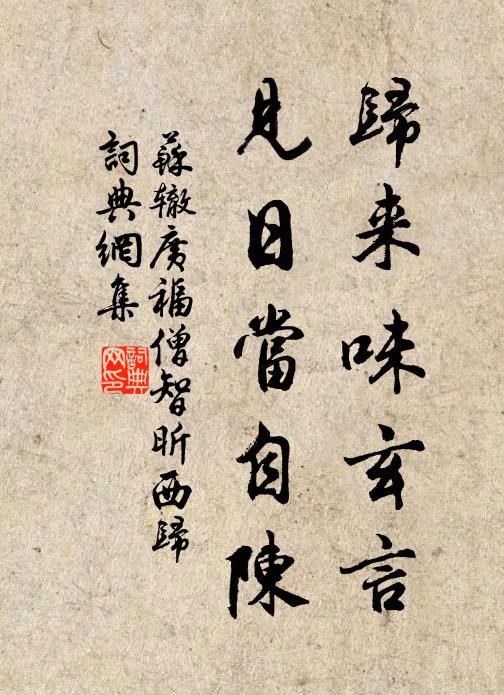 歸来味玄言
見日當自陳
蘇辙廣福僧智昕西歸
詞典網集
詞典网印